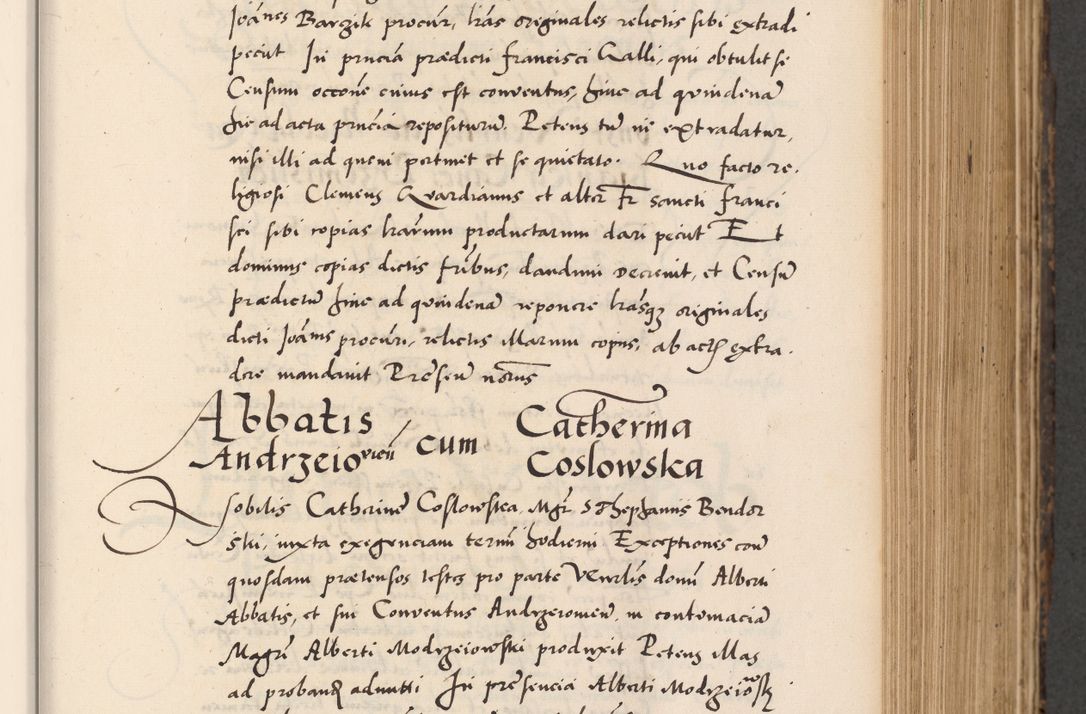 Joanes Barczik procur, lras originales relictis sibi extradi
petiit In pruciā prædicti Francisci Galli, qui obtulit se
Censum occone cuius est conventus, hinc ad quindenā
hic ad acta prnciā repositurū. Petens tū ne extradatur,
nisi illi ad quem pertinet et se quietato. Quo facto re.
ligiosi Clemens Gvardianus et alter Fr sancti Franci
sci sibi copias lrārum productarum dari petiit Et
dominus copias dictis frībus, dandum decrevit, et Censū
prædictū hinc ad quindenā reponere lrāsqȝ originales
dicti Joānis procūri, relictis illarum copiis, ab actis extra.
dere mandavit Præsen nōtus
Abbatis
Andrzeiovien cum Catherina
Coslowska
Nobilis Catherinæ Coslowska, Mgr SThephanus Bendor
ski, iuxta exegenciam termi hodierni Exceptiones con
quosdam prætensos testes pro parte Venrlis domi Alberti
Abbatis, et sui Conventus Andrzeiomen, in contumaciā
Magri Alberti Modrzeiowski produxit Petens illas
ad proband admitti In præsencia Alberti Modrzeiowsk